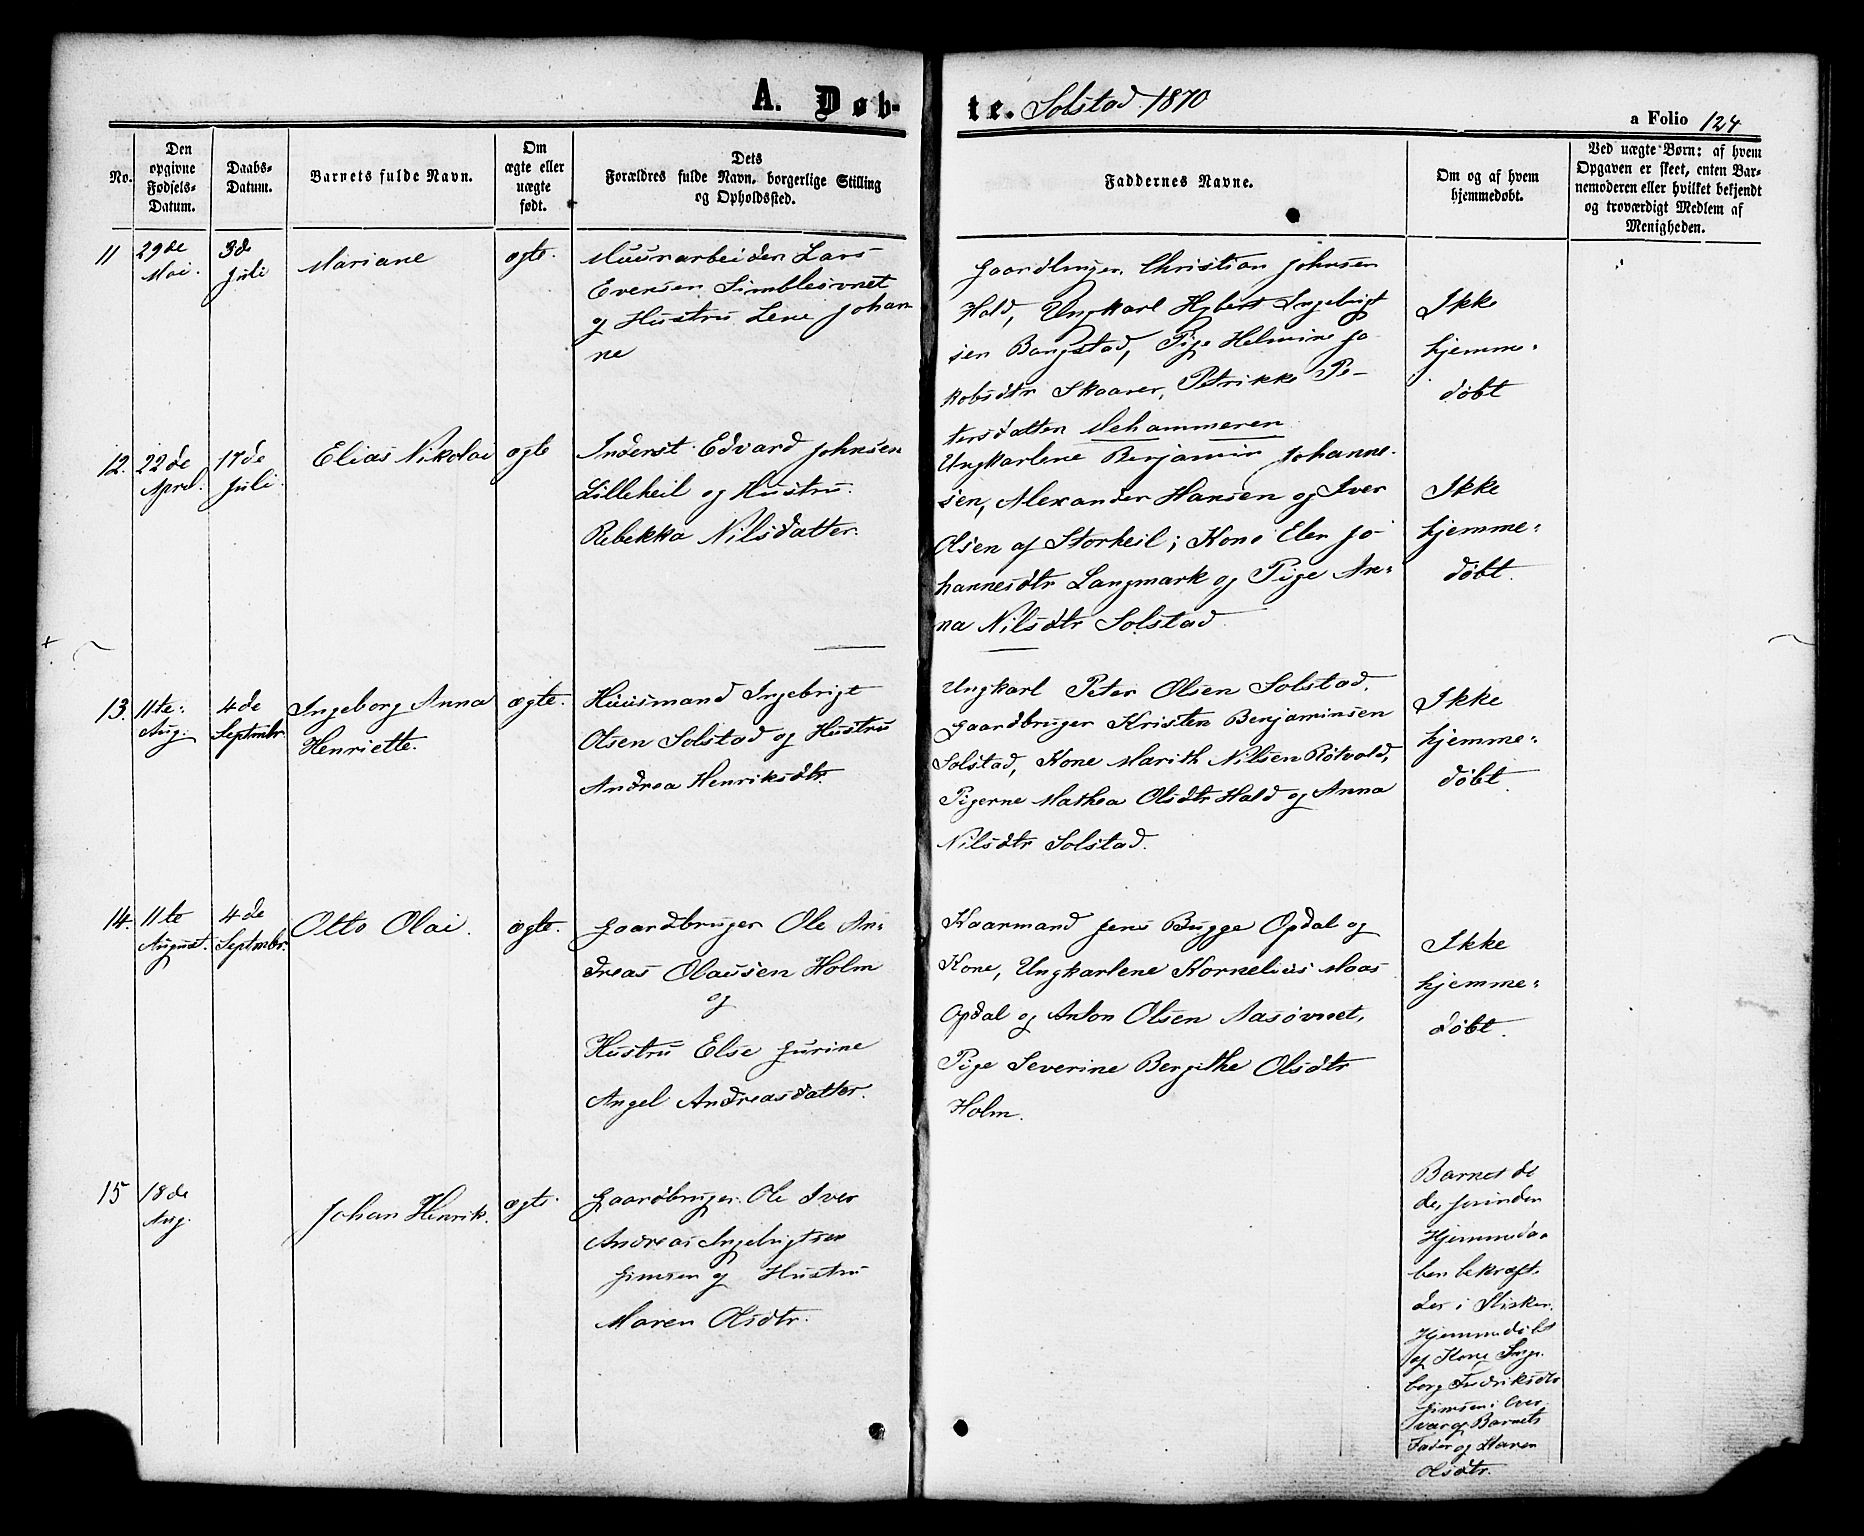 A. Døbte. Solstad 1870
a Folio 124
No.
Den opgivne Fødsels-Datum.
Daabs-Datum.
Barnets fulde Navn.
Om ægte eller uægte født.
Dets Forældres fulde Navn, borgerlige Stilling og Opholdssted.
Faddernes Navne.
Om og af hvem hjemmedøbt.
Ved uægte Børn: af hvem Opgaven er skeet, enten Barnemoderen eller hvilket bekjendt og troværdigt Medlem af Menigheden.
11
29de
Mai.
3de
Juli
Mariane
ægte.
Muurarbeider Lars
Eversen Simblesövnet
og Hustru Lene Johan
ne
Gaardbruger Christian Johnsen
Hald, Ungkarl Hybert Ingebrigt
sen Bangstad, Pige Helmine Ja
kobsdtr Skaaren, Petrikke Pe-
tersdatter Mehammeren
Ikke
hjemme=
döbt
12.
22de
April.
17de
Juli.
Elias Nikolai
ægte
Inderst Edvard Johnsen
Lilleheil og Hustru
Rebekka Nilsdatter.
Ungkarlene Benjamin Johanne-
sen, Alexander Hansen og Iver
Olsen af Storheil; Kone Elen Jo
hannesdtr Langmark og Pige An=
na Nilsdtr Solstad
Ikke
hjemme=
döbt.
13.
11te
Aug.
4de
Septmbr.
Ingeborg Anna
Henriette.
ægte.
Huusmand Ingebrigt
Olsen Solstad og Hustru
Andrea Henriksdtr.
Ungkarl Peter Olsen Solstad,
Gaardbruger Kristen Benjaminsen
Solstad, Kone Marith Nilsen Rötvold,
Pigerne Mathea Olsdtr Hald og Anna
Nilsdtr Solstad.
Ikke
hjemme=
döbt.
14.
11te
August.
4de
Septmbr.
Otto Olai.
ægte.
Gaardbruger Ole An=
dreas Olausen Holm
og
Hustru Else Jurine
Angel Andreasdatter.
Kaarmand Jens Bugge Opdal og
Kone, Ungkarlene Kornelius Maas
Opdal og Anton Olsen Aasövnet,
Pige Severine Bergithe Olsdtr
Holm.
Ikke
hjemme=
döbt.
15
18de
Aug.
Johan Henrik.
ægte.
Gaardbruger Ole Iver
Andreas Ingebrigtsen
Simsen og Hustru
Maren Olsdtr.
Barnet dö
de, forinden
Hjemmedaa
ben bekræft-
des i Kirken.
Hjemmedöbt
af Kone Inge-
borg Fredriksdtr
Simsen i Over
vær af Barnets
Fader og Maren
Olsdtr.